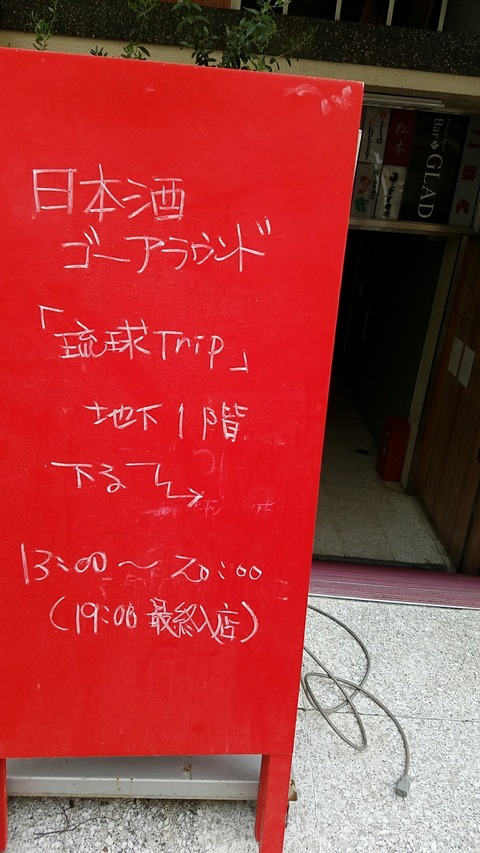 日本酒
ゴーアラウンド
「琉球Trip」
地下1階
下る
13:00〜20:00
(19:00 最終入店)
松本
Bar GLAD
案内